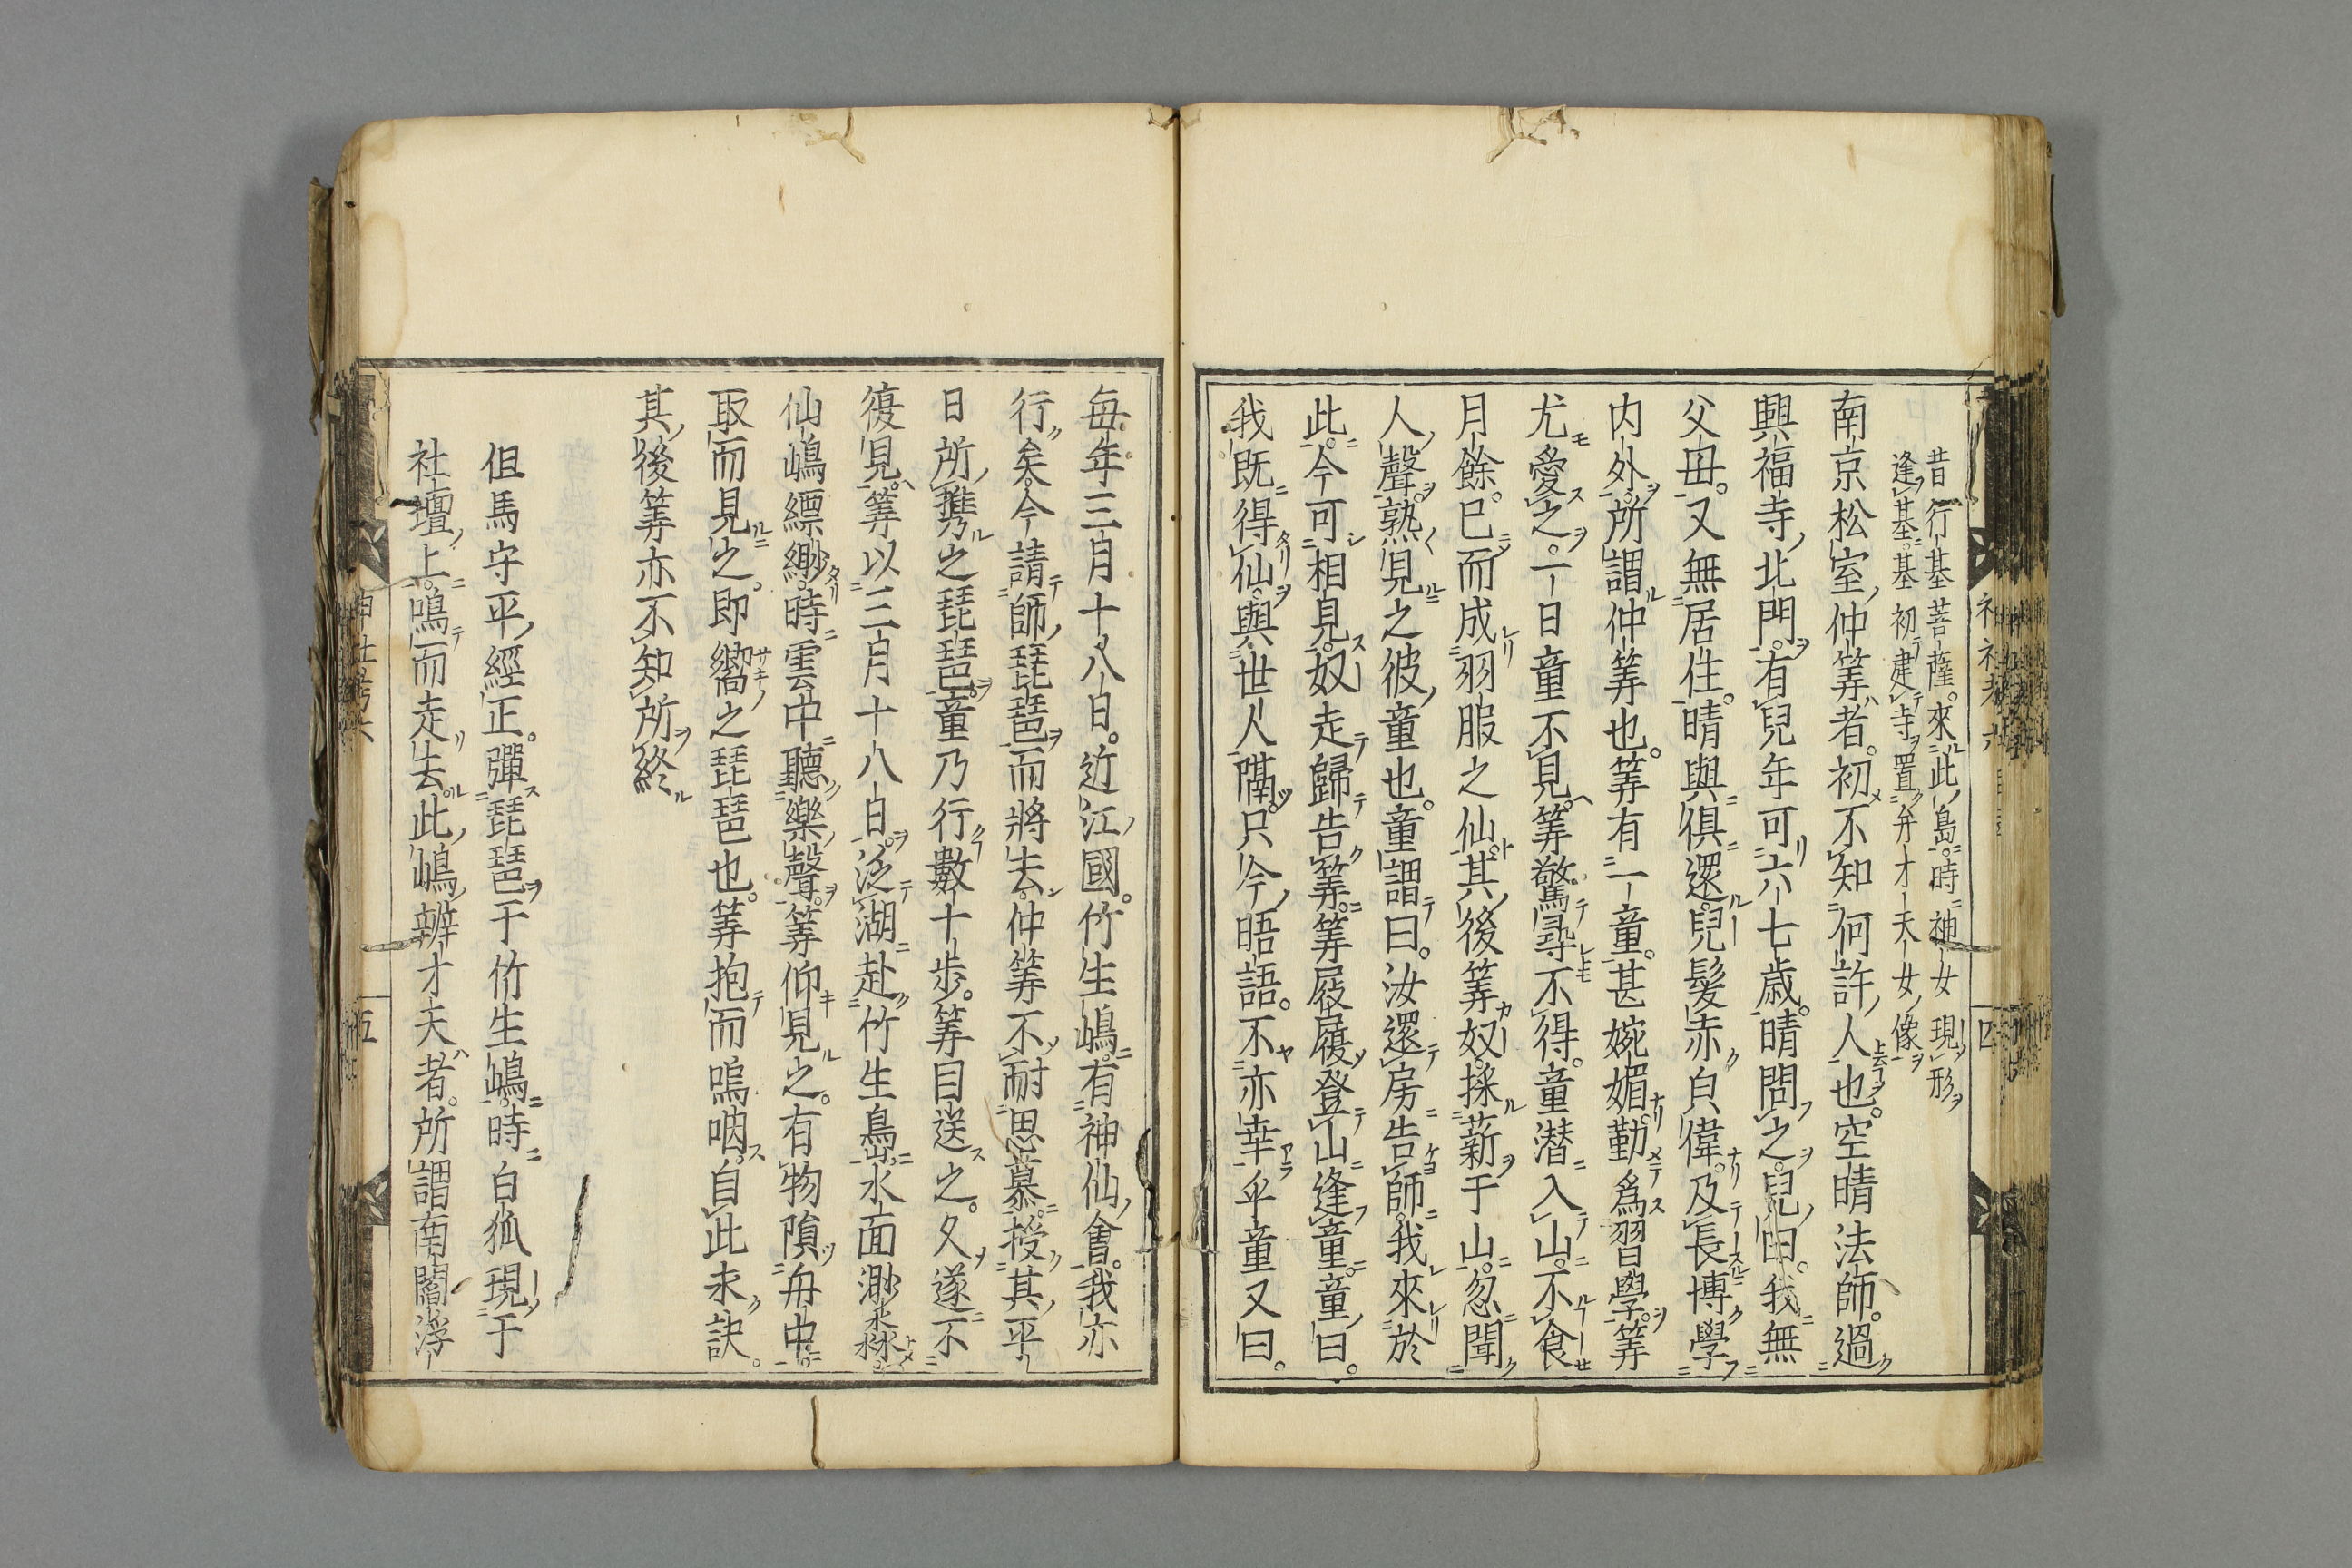 昔行基菩薩來此島時神女現形
逢基基初建寺置弁才天女像
南京松室仲筭者初不知何許人也空晴法師過
興福寺北門有兒年可六七歳晴問之兒曰我無
父母又無居住晴與倶還兒髪赤白偉及長博學
内外所謂仲筭也筭有一童甚婉媚勤爲習學筭
尤愛之一日童不見筭驚尋不得童潜入山不食
月餘已而成羽服之仙其後筭奴採薪于山忽聞
人聲熟見之彼童也童謂曰汝還房告師我來於
此今可相見奴走歸告筭筭屐履登山逢童童曰
我既得仙與世人隔只今晤語不亦幸乎童又曰
毎年三月十八日近江國竹生嶋有神仙會我亦
行矣今請師琵琶而將去仲筭不耐思慕授其平
日所携之琵琶童乃行數十歩筭目送之久遂不
復見筭以三月十八日泛湖赴竹生嶌水面渺淼
仙嶋縹緲時雲中聽樂聲筭仰見之有物隕舟中
取而見之即嚮之琵琶也筭抱而嗚咽自此永訣
其後筭亦不知所終
但馬守平經正彈琵琶于竹生嶋時白狐現于
社壇上鳴而走去此嶋辨才天者所謂南閻浮
神社考六
四
神社考六
五